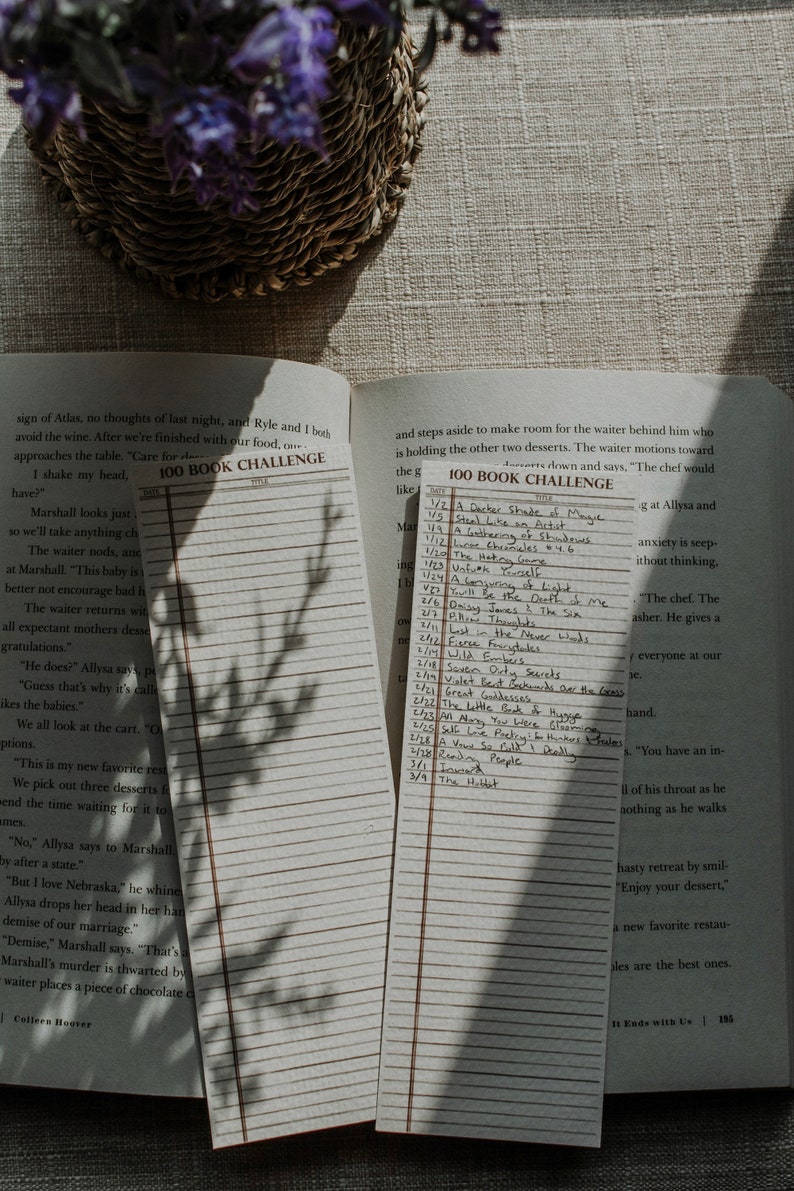 sign of Atlas, no thoughts of last night, and Ryle and I both
avoid the wine. After we're finished with our food, our
approaches the table. "Care for
I shake my head,
have?"
Marshall looks just
so we'll take anything
The waiter nods,
at Marshall. "This baby is
better not encourage bad
The waiter returns
all expectant mothers
gratulations."
"He does?" Allysa says,
"Guess that's why it's
likes the babies."
We all look at the cart.
options.
"This is my new favorite
We pick out three desserts
the time waiting for it to
"No," Allysa says to Marshall.
by after a state."
"But I love Nebraska," he
Allysa drops her head in her
demise of our marriage."
"Demise," Marshall says. "That's
Marshall's murder is thwarted by
waiter places a piece of chocolate
| Colleen Hoover
100 BOOK CHALLENGE
DATE TITLE
100 BOOK CHALLENGE
DATE TITLE
1/2 A Darker Shade of Magic
1/5 Steal Like an Artist
1/9 A Gathering of Shadows
1/12 Lunar Chronicles #4.6
1/20 The Hating Game
1/23 Unfu*k Yourself
1/24 A Conjuring of Light
1/27 You'll Be the Death of Me
2/6 Daisy Jones & The Six
2/7 Pillow Thoughts
2/11 Lost in the Never Woods
2/12 Fierce Fairytales
2/14 Wild Embers
2/18 Seven Dirty Secrets
2/19 Violet Bent Backwards Over the Grass
2/21 Great Goddesses
2/22 The Little Book of Hygge
2/23 All Along You Were Blooming
2/25 Self Love Poetry: for Thinkers & Feelers
2/28 A Vow So Bold & Deadly
2/28 Reading People
3/1 Inward
3/9 The Hobbit
and steps aside to make room for the waiter behind him who
is holding the other two desserts. The waiter motions toward
the desserts down and says, "The chef would
like
at Allysa and
anxiety is seep-
without thinking,
I
"The chef. The
He gives a
everyone at our
hand.
"You have an in-
of his throat as he
nothing as he walks
hasty retreat by smil-
"Enjoy your dessert,"
a new favorite restau-
are the best ones.
It Ends with Us | 195